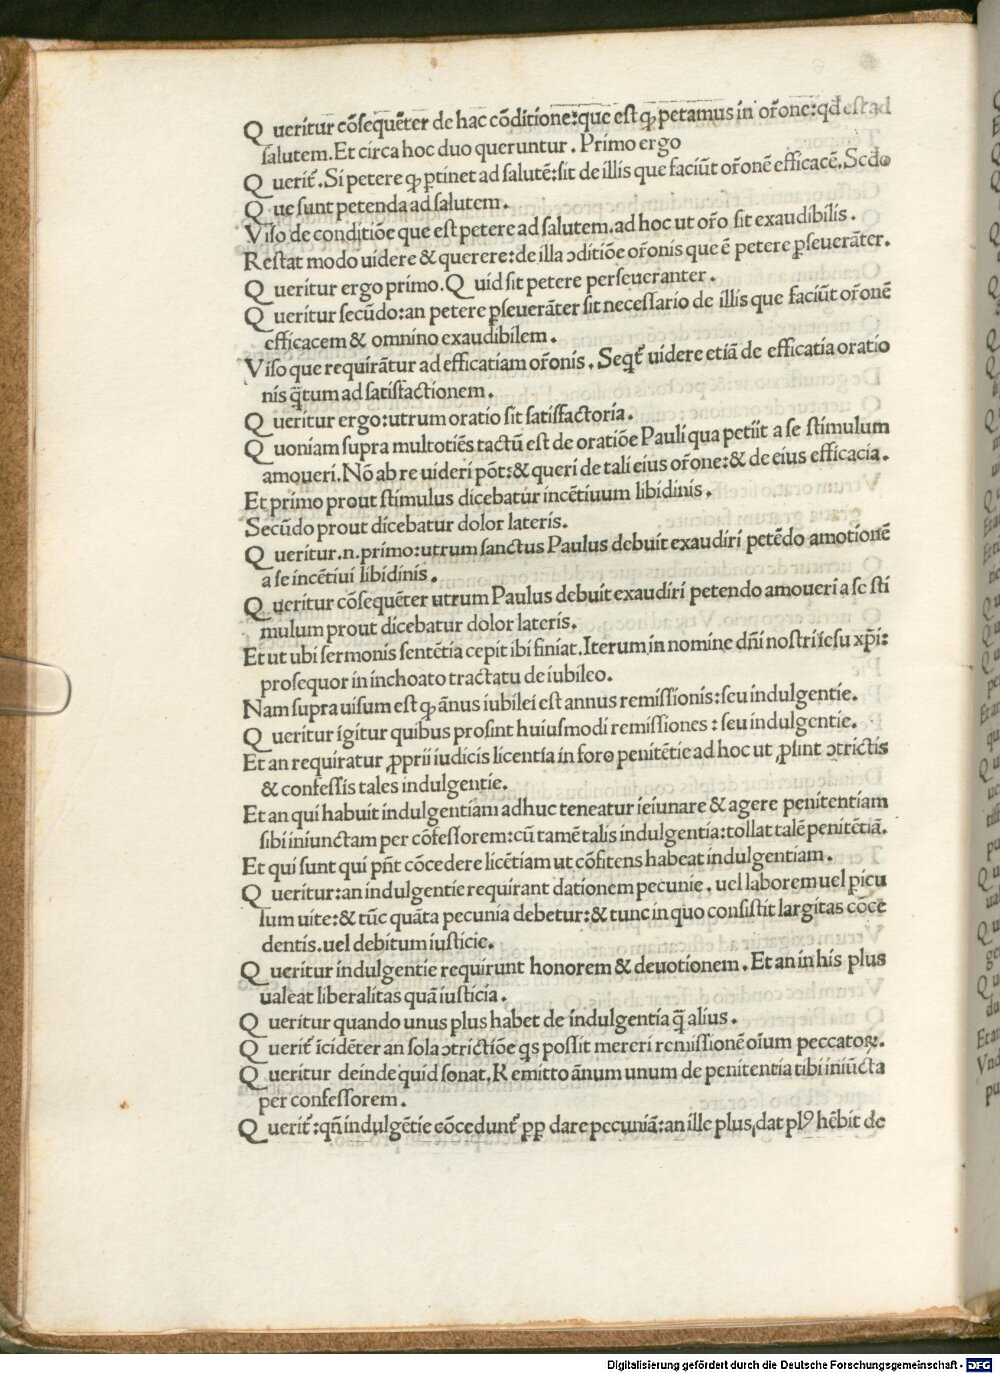 Q ueritur cõſequẽter de hac cõditione:que eſt ꝙ petamus in or̃one:qđ eſt ad
ſalutem.Et circa hoc duo queruntur . Primo ergo
Q uerit̃.Si petere ꝙ ꝑtinet ad ſalutẽ:ſit de illis que faciũt or̃onẽ efficacẽ.Scđo
Q ue ſunt petenda ad ſalutem.
Viſo de conditiõe que eſt petere ad ſalutem.ad hoc ut or̃o ſit exaudibilis .
Reſtat modo uidere & querere:de illa ↄditiõe or̃onis que ẽ petere ꝑſeuerãter.
Q ueritur ergo primo.Q uid ſit petere perſeueranter .
Q ueritur ſecũdo:an petere ꝑſeuerãter ſit neceſſario de illis que faciũt or̃onẽ
efficacem & omnino exaudibilem .
Viſo que requirãtur ad efficatiam or̃onis . Seqt̃ uidere etiã de efficatia oratio
nis q̃tum ad ſatisfactionem .
Q ueritur ergo:utrum oratio ſit ſatisfactoria .
Q uoniam ſupra multotiẽs tactũ eſt de oratiõe Pauli qua petiit a ſe ſtimulum
amoueri.Nõ ab re uideri põt:& queri de tali eius or̃one:& de eius efficacia.
Et primo prout ſtimulus dicebatur incẽtiuum libidinis .
Secũdo prout dicebatur dolor lateris.
Q ueritur.n.primo:utrum ſanctus Paulus debuit exaudiri petẽdo amotionẽ
a ſe incẽtiui libidinis .
Q ueritur cõſequẽter utrum Paulus debuit exaudiri petendo amoueri a ſe ſti
mulum prout dicebatur dolor lateris.
Et ut ubi ſermonis ſentẽtia cepit ibi finiat.Iterum in nomine dñi noſtri ieſu xp̃i:
proſequor in inchoato tractatu de iubileo.
Nam ſupra uiſum eſt ꝙ ãnus iubilei eſt annus remiſſionis:ſeu indulgentie.
Q ueritur igitur quibus proſint huiuſmodi remiſſiones : ſeu indulgentie.
Et an requiratur ꝓprii iudicis licentia in foro penitẽtie ad hoc ut ꝓſint ↄtrictis
& confeſſis tales indulgentie.
Et an qui habuit indulgentiam adhuc teneatur ieiunare & agere penitentiam
ſibi iniunctam per cõfeſſorem:cũ tamẽ talis indulgentia:tollat talẽ penitẽtiã.
Et qui ſunt qui pñt cõcedere licẽtiam ut cõfitens habeat indulgentiam .
Q ueritur:an indulgentie requirant dationem pecunie . uel laborem uel picu
lum uite:& tũc quãta pecunia debetur:& tunc in quo conſiſtit largitas cõce
dentis.uel debitum iuſticie.
Q ueritur indulgentie requirunt honorem & deuotionem . Et an in his plus
ualeat liberalitas quã iuſticia .
Q ueritur quando unus plus habet de indulgentia q̃ alius .
Q uerit̃ icidẽter an ſola ↄtrictiõe qs poſſit mereri remiſſionẽ oĩum peccatoꝝ.
Q ueritur deinde quid ſonat.Remitto ãnum unum de penitentia tibi iniũcta
per confeſſorem .
Q uerit̃:qñ indulgẽtie cõcedunt̃ pp dare pecuniã:an ille plus dat plꝰ hẽbit de
Digitalisierung gefördert durch die Deutsche Forschungsgemeinschaft - DFG